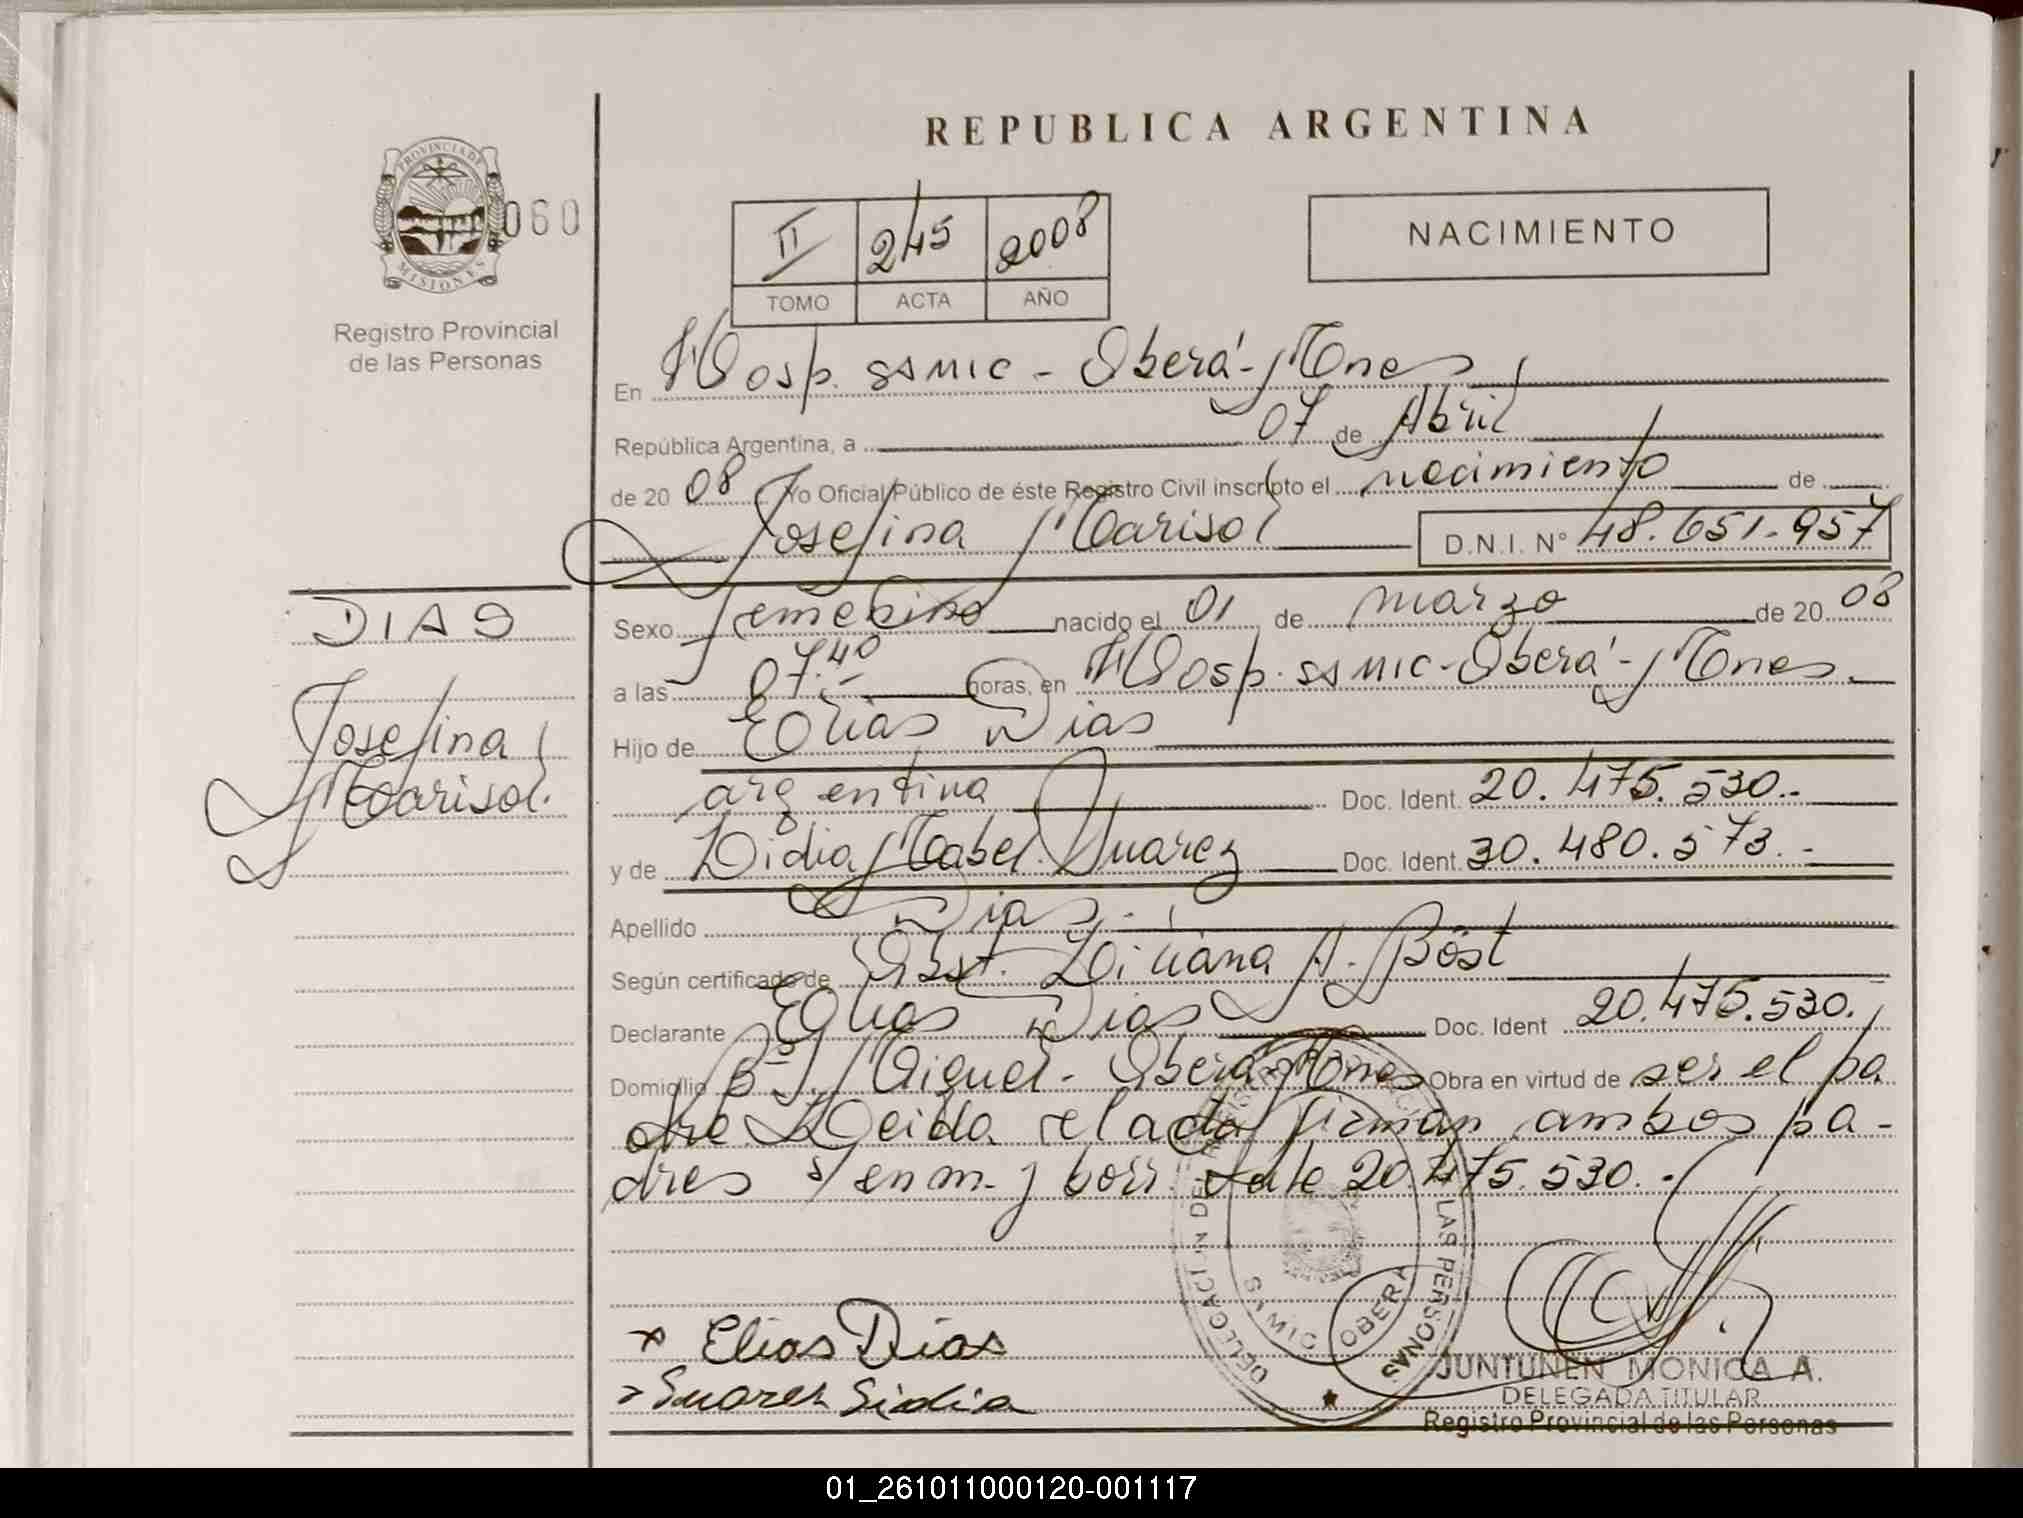 REPUBLICA ARGENTINA
PROVINCIA DE
MISIONES
060
Registro Provincial
de las Personas
II 245 2008
TOMO ACTA AÑO
NACIMIENTO
En Hosp. SAMIC - Oberá - Mnes
República Argentina, a 07 de Abril
de 20 08 Yo Oficial Público de éste Registro Civil inscripto el nacimiento de
Josefina Marisol D.N.I. Nº 48.651.957
DIAS
Josefina
Marisol.
Sexo femenino nacido el 01 de marzo de 20 08
a las 07.40 horas, en Hosp. SAMIC - Oberá - Mnes.
Hijo de Elias Dias
argentina Doc. Ident. 20.475.530.-
y de Lidia Mabel Suarez Doc. Ident. 30.480.573.-
Apellido Dias.-
Según certificado de Obst. Liliana A. Böst
Declarante Elias Dias Doc. Ident 20.475.530.
Domicilio Bº S. Miguel - Oberá - Mnes Obra en virtud de ser el pa
dre Leida el acta firman ambos pa-
dres s/ enm. y borr. vale 20.475.530.-
SAMIC OBERA
LAS PERSONAS
x Elias Dias
Suarez Lidia
JUNTUNEN MONICA A.
DELEGADA TITULAR
Registro Provincial de las Personas
01_261011000120-001117